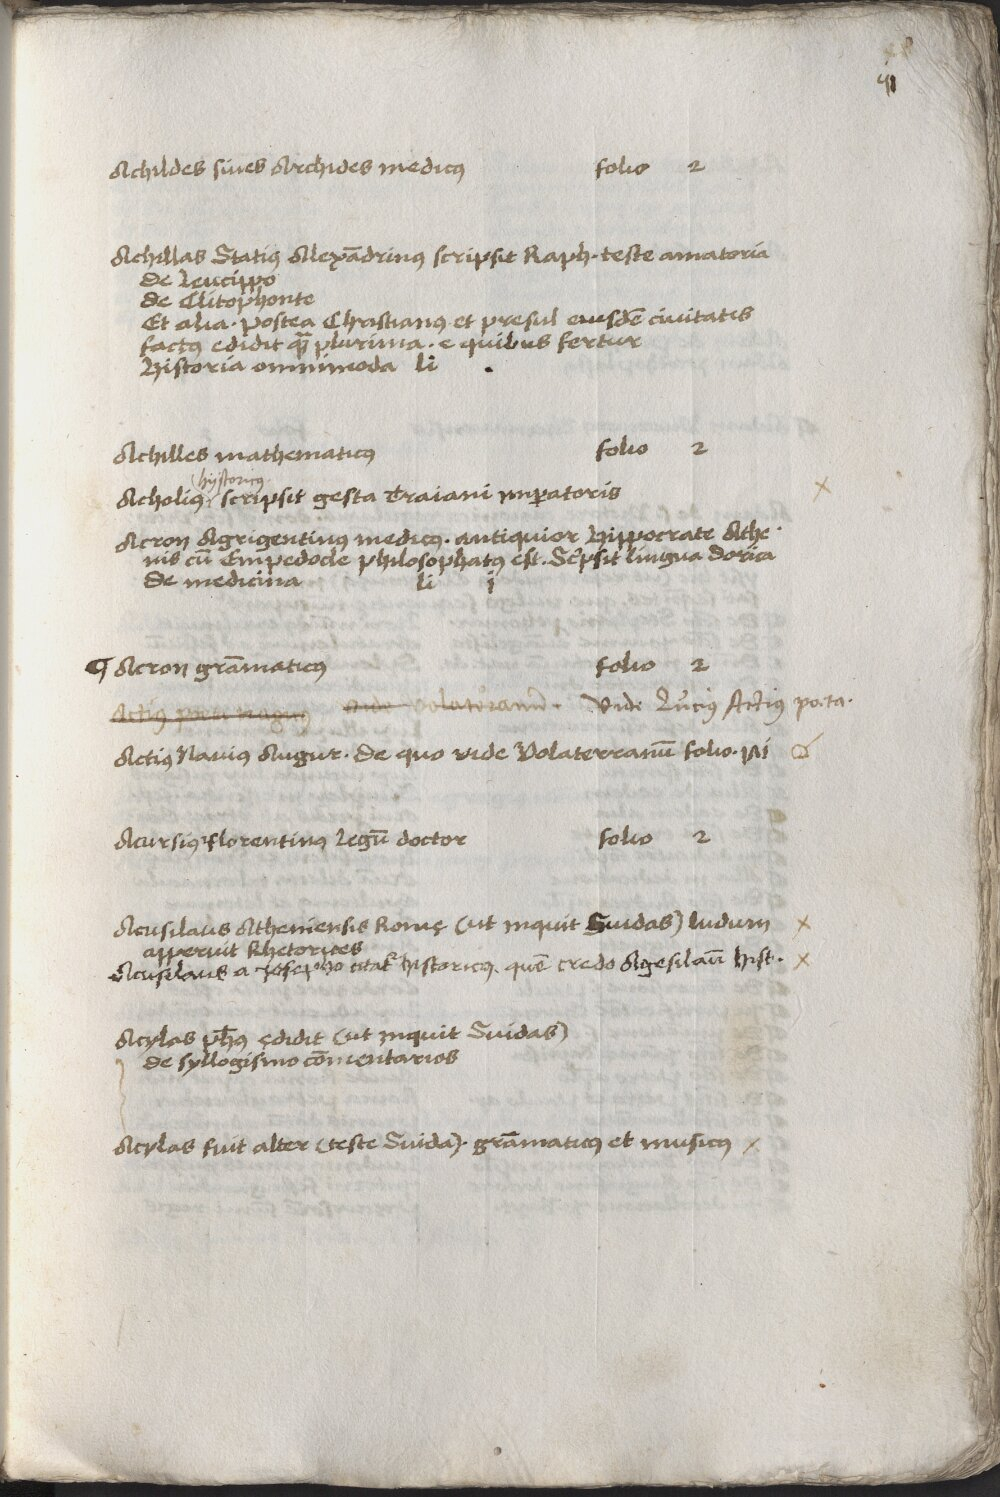 Achildes siues Archides medicꝰ folio 2
Achillas Statiꝰ Alexādrinꝰ scripsit Raph. teste amatoria
de Leucippo
de Clitophonte
Et alia. postea Christianꝰ et presul eiusdē ciuitatis
factꝰ edidit quā plurima. e quibus fertur
Historia omnimoda li .
Achilles mathematicꝰ folio 2
hystoricꝰ
Acholiꝰ scripsit gesta Traiani imꝑatoris ×
Acron Agrigentinꝰ medicꝰ. antiquior Hippocrate Athe.
nis cū Empedocle philosophatꝰ est. Scpsit lingua dorica
de medicina li j
¶ Acron grāmaticꝰ folio 2
Actiꝰ poeta tragicꝰ vide Volateranū. Vide Luciꝰ Actiꝰ poeta.
Actiꝰ Nauiꝰ Augur. de quo vide Volaterranū folio.
Acursiꝰ florentinꝰ Legū doctor folio 2
Acusilaus Atheniensis Romę (ut inquit Suidas) ludum ×
apperuit Rhetorices
Acusilaus a Josepho citat historicꝰ. quē credo Agesilaū hist. ×
Acylas ph̄s ędidit (ut inquit Suidas)
de syllogismo cōmentarios
Acylas fuit alter (teste Suida). grāmaticꝰ et musicꝰ ×